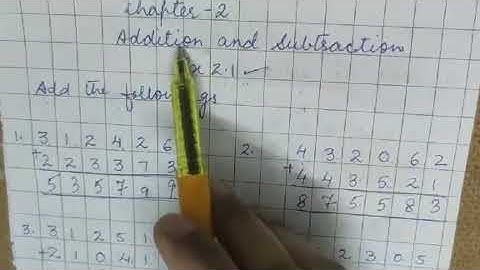 Chapter-2
Addition and Subtraction
2.1
Add the
1. 3 1 2 4 2 6
+ 2 2 3 3 7 3
5 3 5 7 9 9
2. 4 3 2 0 6 2
+ 4 4 3 5 2 1
8 7 5 5 8 3
3. 3 1 2 5 1
+ 2 1 0 4 1
2 3 0 5